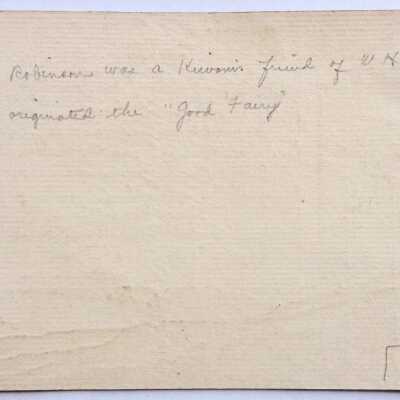 Robinson was a Kiwanis friend of W H
originated the "Good Fairy"